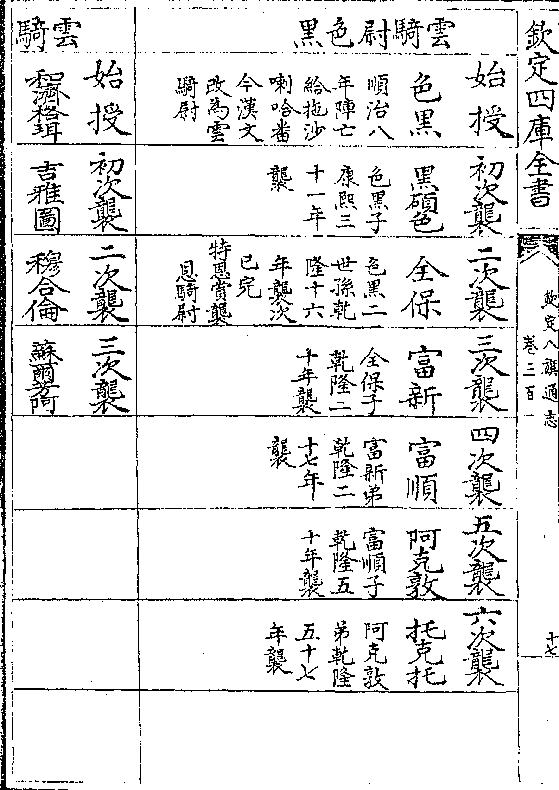 欽定四庫全書
欽定八旗通志
卷三百一
十七
雲騎尉色黑
始授
色黑
順治八
年陣亡
給拖沙
喇哈番
今漢文
改為雲
騎尉
初次襲
黑碩色
色黑子
康熙三
十一年
襲
二次襲
全保
色黑二
世孫乾
隆十六
年襲次
已完
特恩賞襲
恩騎尉
三次襲
富新
全保子
乾隆二
十年襲
四次襲
富順
富新弟
乾隆二
十七年
襲
五次襲
阿克敦
富順子
乾隆五
十年襲
六次襲
托克托
阿克敦
弟乾隆
五十七
年襲
雲騎
始授
和濟格珥
初次襲
吉雅圖
二次襲
穆合倫
三次襲
蘇爾芳阿